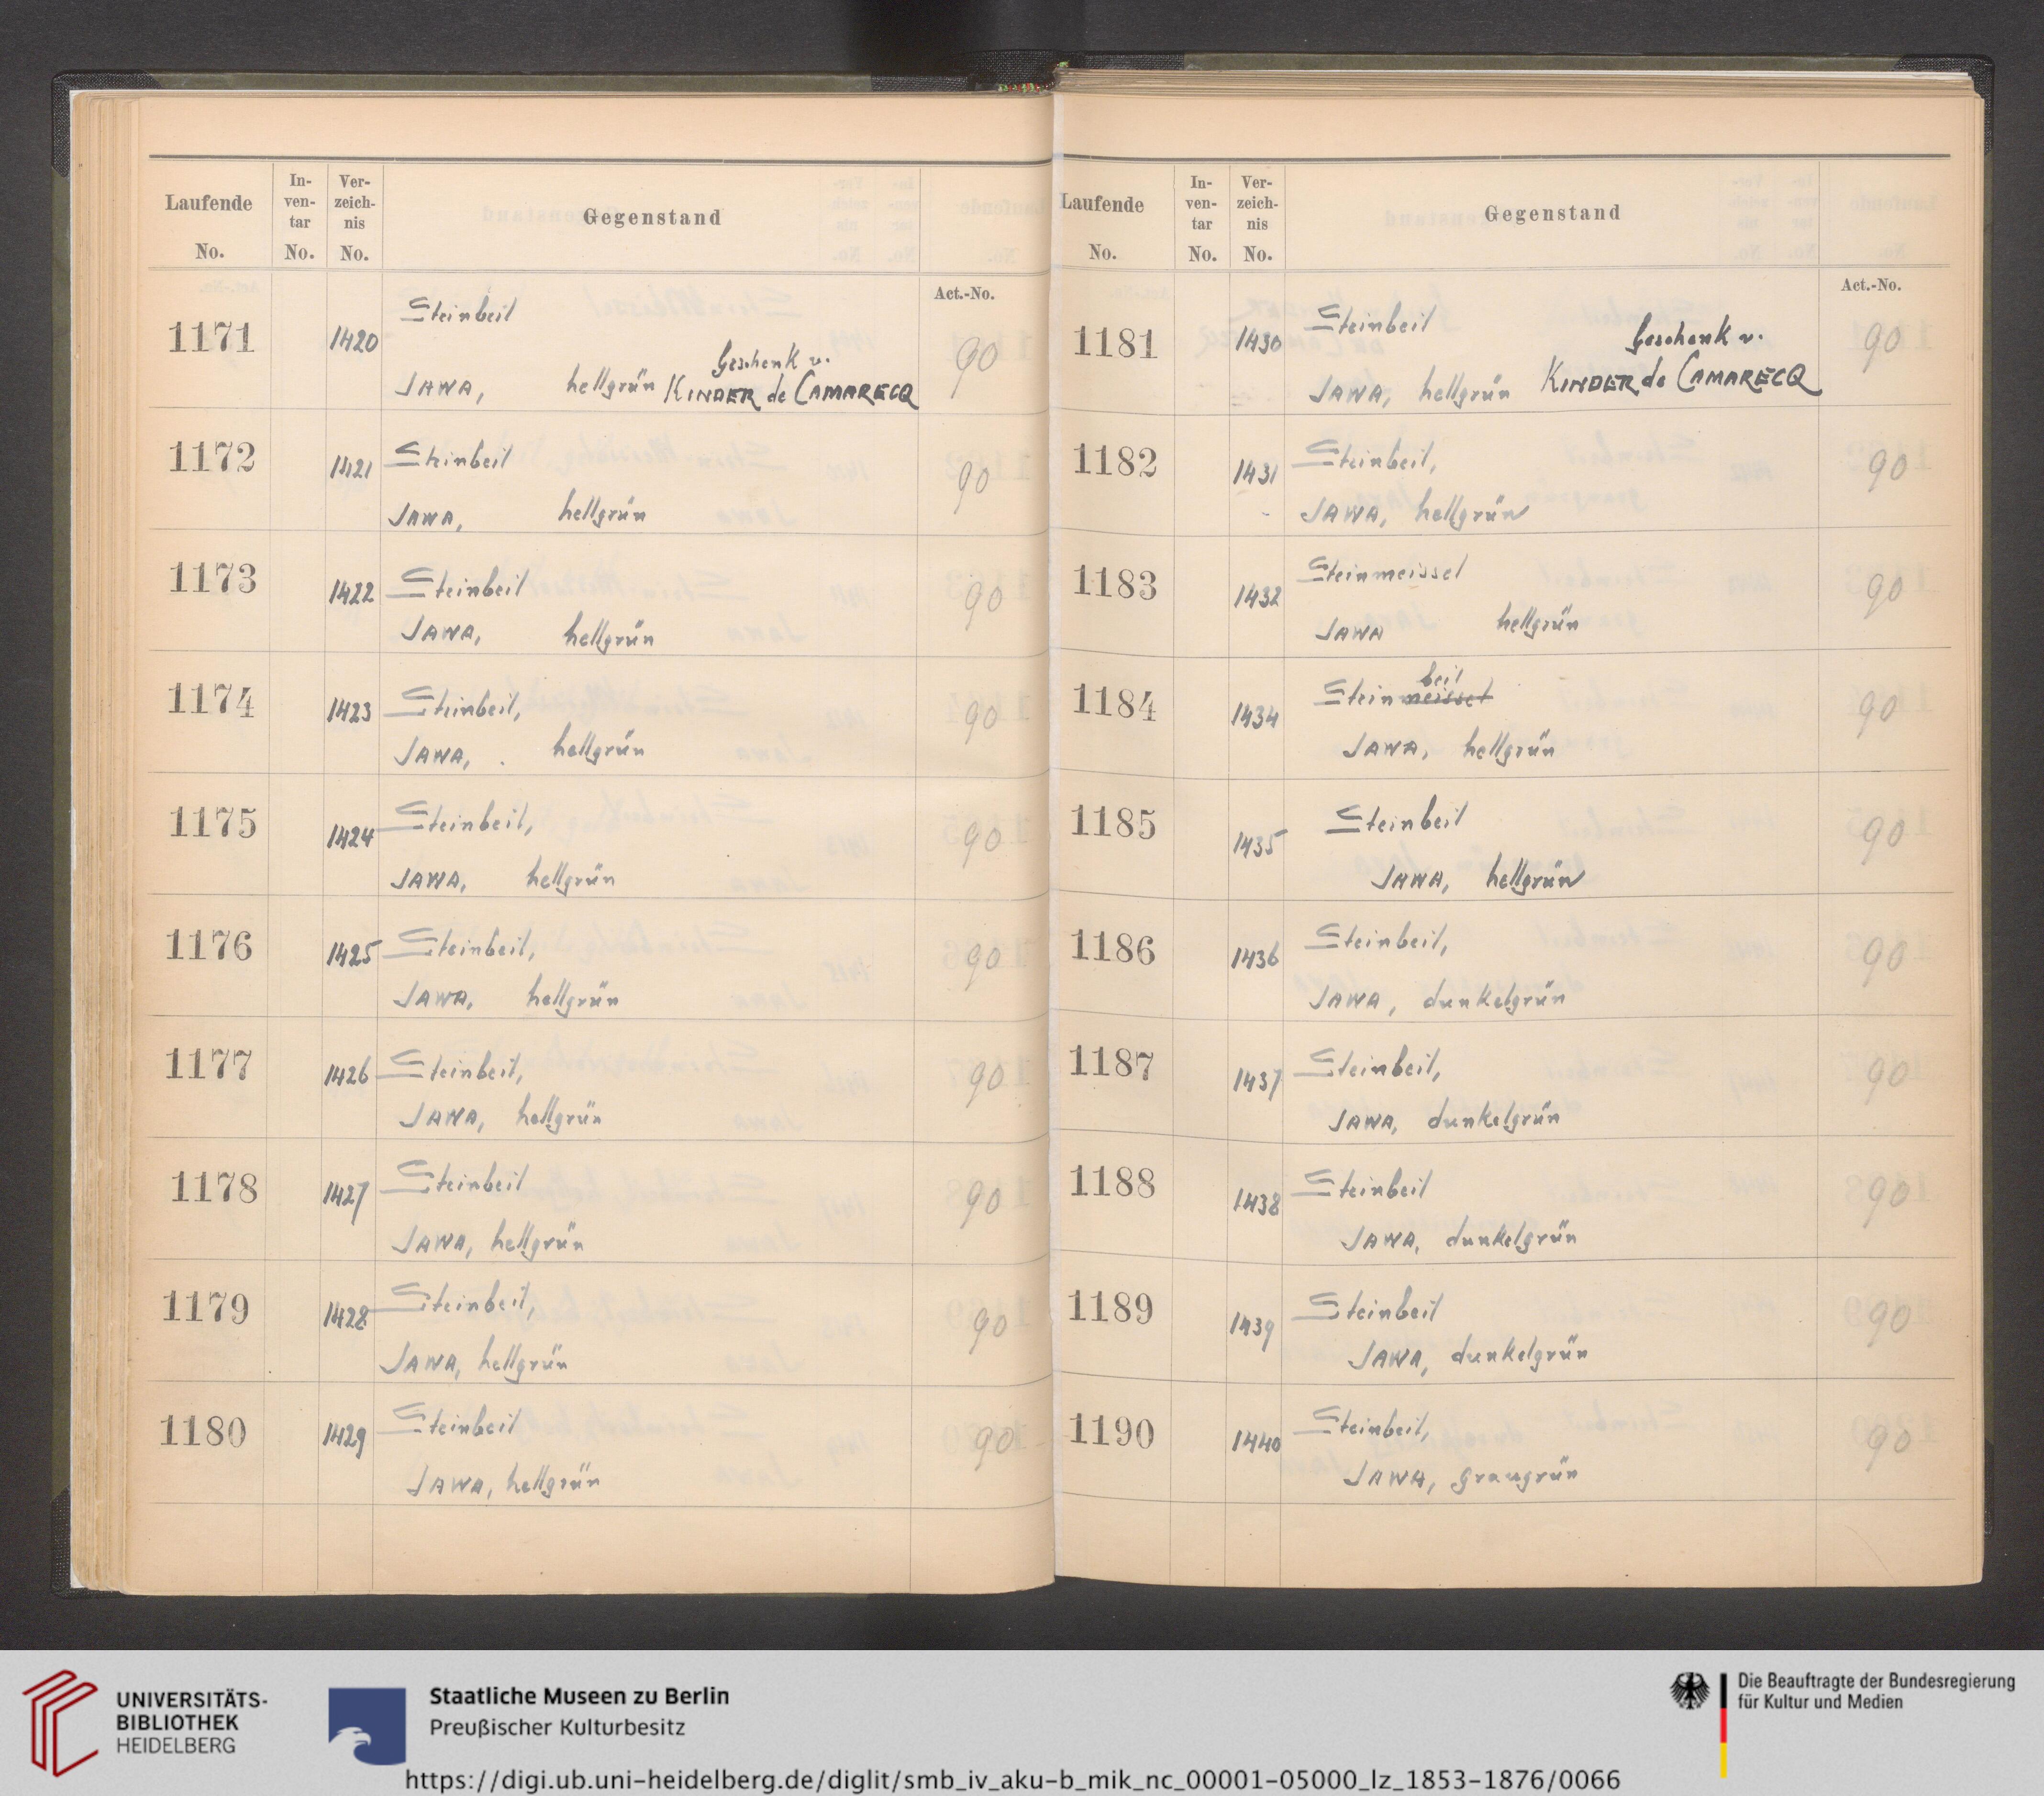 Laufende No. In-ven-tar No. Ver-zeich-nis No. Gegenstand
Act.-No.
1171 1420 Steinbeil 90
Geschenk v.
JAWA, hellgrün KINDER de CAMARECQ
1172 1421 Steinbeil 90
JAWA, hellgrün
1173 1422 Steinbeil 90
JAWA, hellgrün
1174 1423 Steinbeil, 90
JAWA, hellgrün
1175 1424 Steinbeil, 90
JAWA, hellgrün
1176 1425 Steinbeil, 90
JAWA, hellgrün
1177 1426 Steinbeil, 90
JAWA, hellgrün
1178 1427 Steinbeil 90
JAWA, hellgrün
1179 1428 Steinbeil, 90
JAWA, hellgrün
1180 1429 Steinbeil 90
JAWA, hellgrün
Laufende No. In-ven-tar No. Ver-zeich-nis No. Gegenstand
Act.-No.
1181 1430 Steinbeil 90
Geschenk v.
JAWA, hellgrün KINDER de CAMARECQ
1182 1431 Steinbeil, 90
JAWA, hellgrün
1183 1432 Steinmeissel 90
JAWA hellgrün
beil
1184 1434 Steinmeissel 90
JAWA, hellgrün
1185 1435 Steinbeil 90
JAWA, hellgrün
1186 1436 Steinbeil, 90
JAWA, dunkelgrün
1187 1437 Steinbeil, 90
JAWA, dunkelgrün
1188 1438 Steinbeil 90
JAWA, dunkelgrün
1189 1439 Steinbeil 90
JAWA, dunkelgrün
1190 1440 Steinbeil, 90
JAWA, graugrün
UNIVERSITÄTS-
BIBLIOTHEK
HEIDELBERG
Staatliche Museen zu Berlin
Preußischer Kulturbesitz
Die Beauftragte der Bundesregierung
für Kultur und Medien
https://digi.ub.uni-heidelberg.de/diglit/smb_iv_aku-b_mik_nc_00001-05000_lz_1853-1876/0066